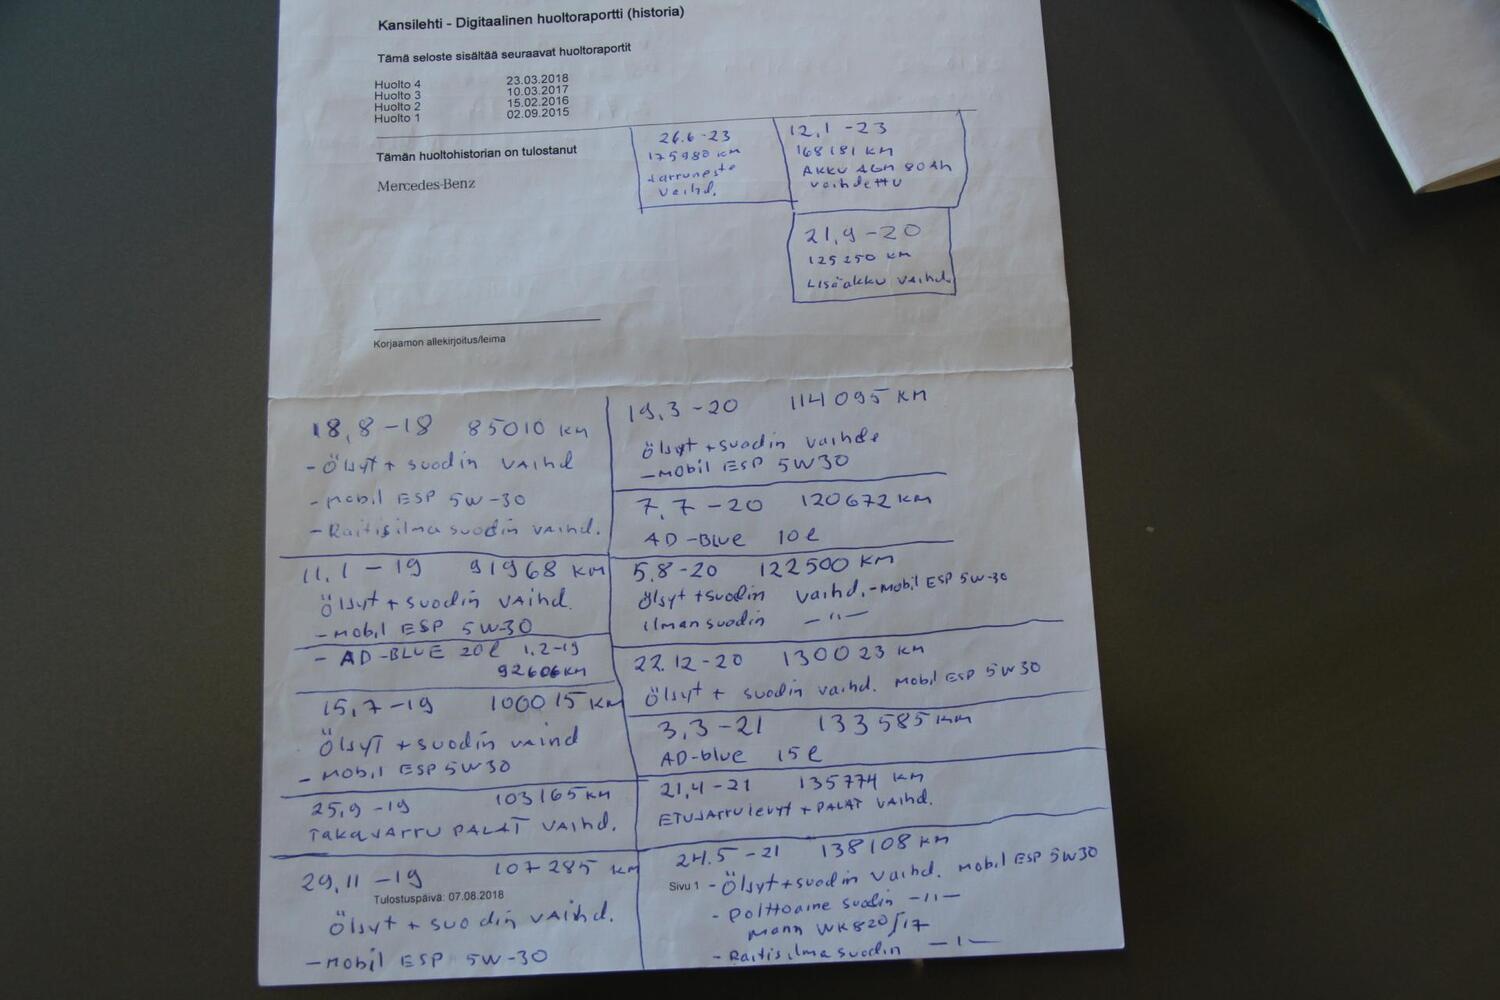 Kansilehti - Digitaalinen huoltoraportti (historia)
Tämä seloste sisältää seuraavat huoltoraportit
Huolto 4 23.03.2018
Huolto 3 10.03.2017
Huolto 2 15.02.2016
Huolto 1 02.09.2015
Tämän huoltohistorian on tulostanut
Mercedes-Benz
26.6-23
175980 KM
Jarruneste
vaihd.
12,1-23
168181 KM
AKKU AGM 80Ah
vaihdettu
21,9-20
125250 KM
Lisäakku vaihd.
Korjaamon allekirjoitus/leima
18,8-18 85010 KM
- Öljyt + suodin vaihd
- Mobil ESP 5W-30
- Raitisilmasuodin vaihd.
11,1-19 91968 KM
Öljyt + suodin vaihd.
- Mobil ESP 5W-30
- AD-BLUE 20l 1.2-19
92606KM
15,7-19 100015 KM
Öljyt + suodin vaihd
- Mobil ESP 5W30
25,9-19 103165KM
Takajarru PALAT vaihd.
29,11-19 107285 KM
Tulostuspäivä: 07.08.2018
Öljyt + suodin vaihd.
- Mobil ESP 5W-30
19,3-20 114095 KM
Öljyt + suodin vaihde
- Mobil ESP 5W30
7,7-20 120672 KM
AD-Blue 10l
5,8-20 122500 KM
Öljyt + suodin vaihd. - Mobil ESP 5W-30
ilman suodin -"-
22.12-20 130023 KM
Öljyt + suodin vaihd. Mobil ESP 5W30
3,3-21 133585 KM
AD-blue 15l
21,4-21 135774 KM
ETUJARRUlevyt + PALAT vaihd.
24.5-21 138108 KM
Sivu 1
- Öljyt + suodin vaihd. Mobil ESP 5W30
- Polttoaine suodin -"-
Mann WK820/17
- Raitisilmasuodin -"-